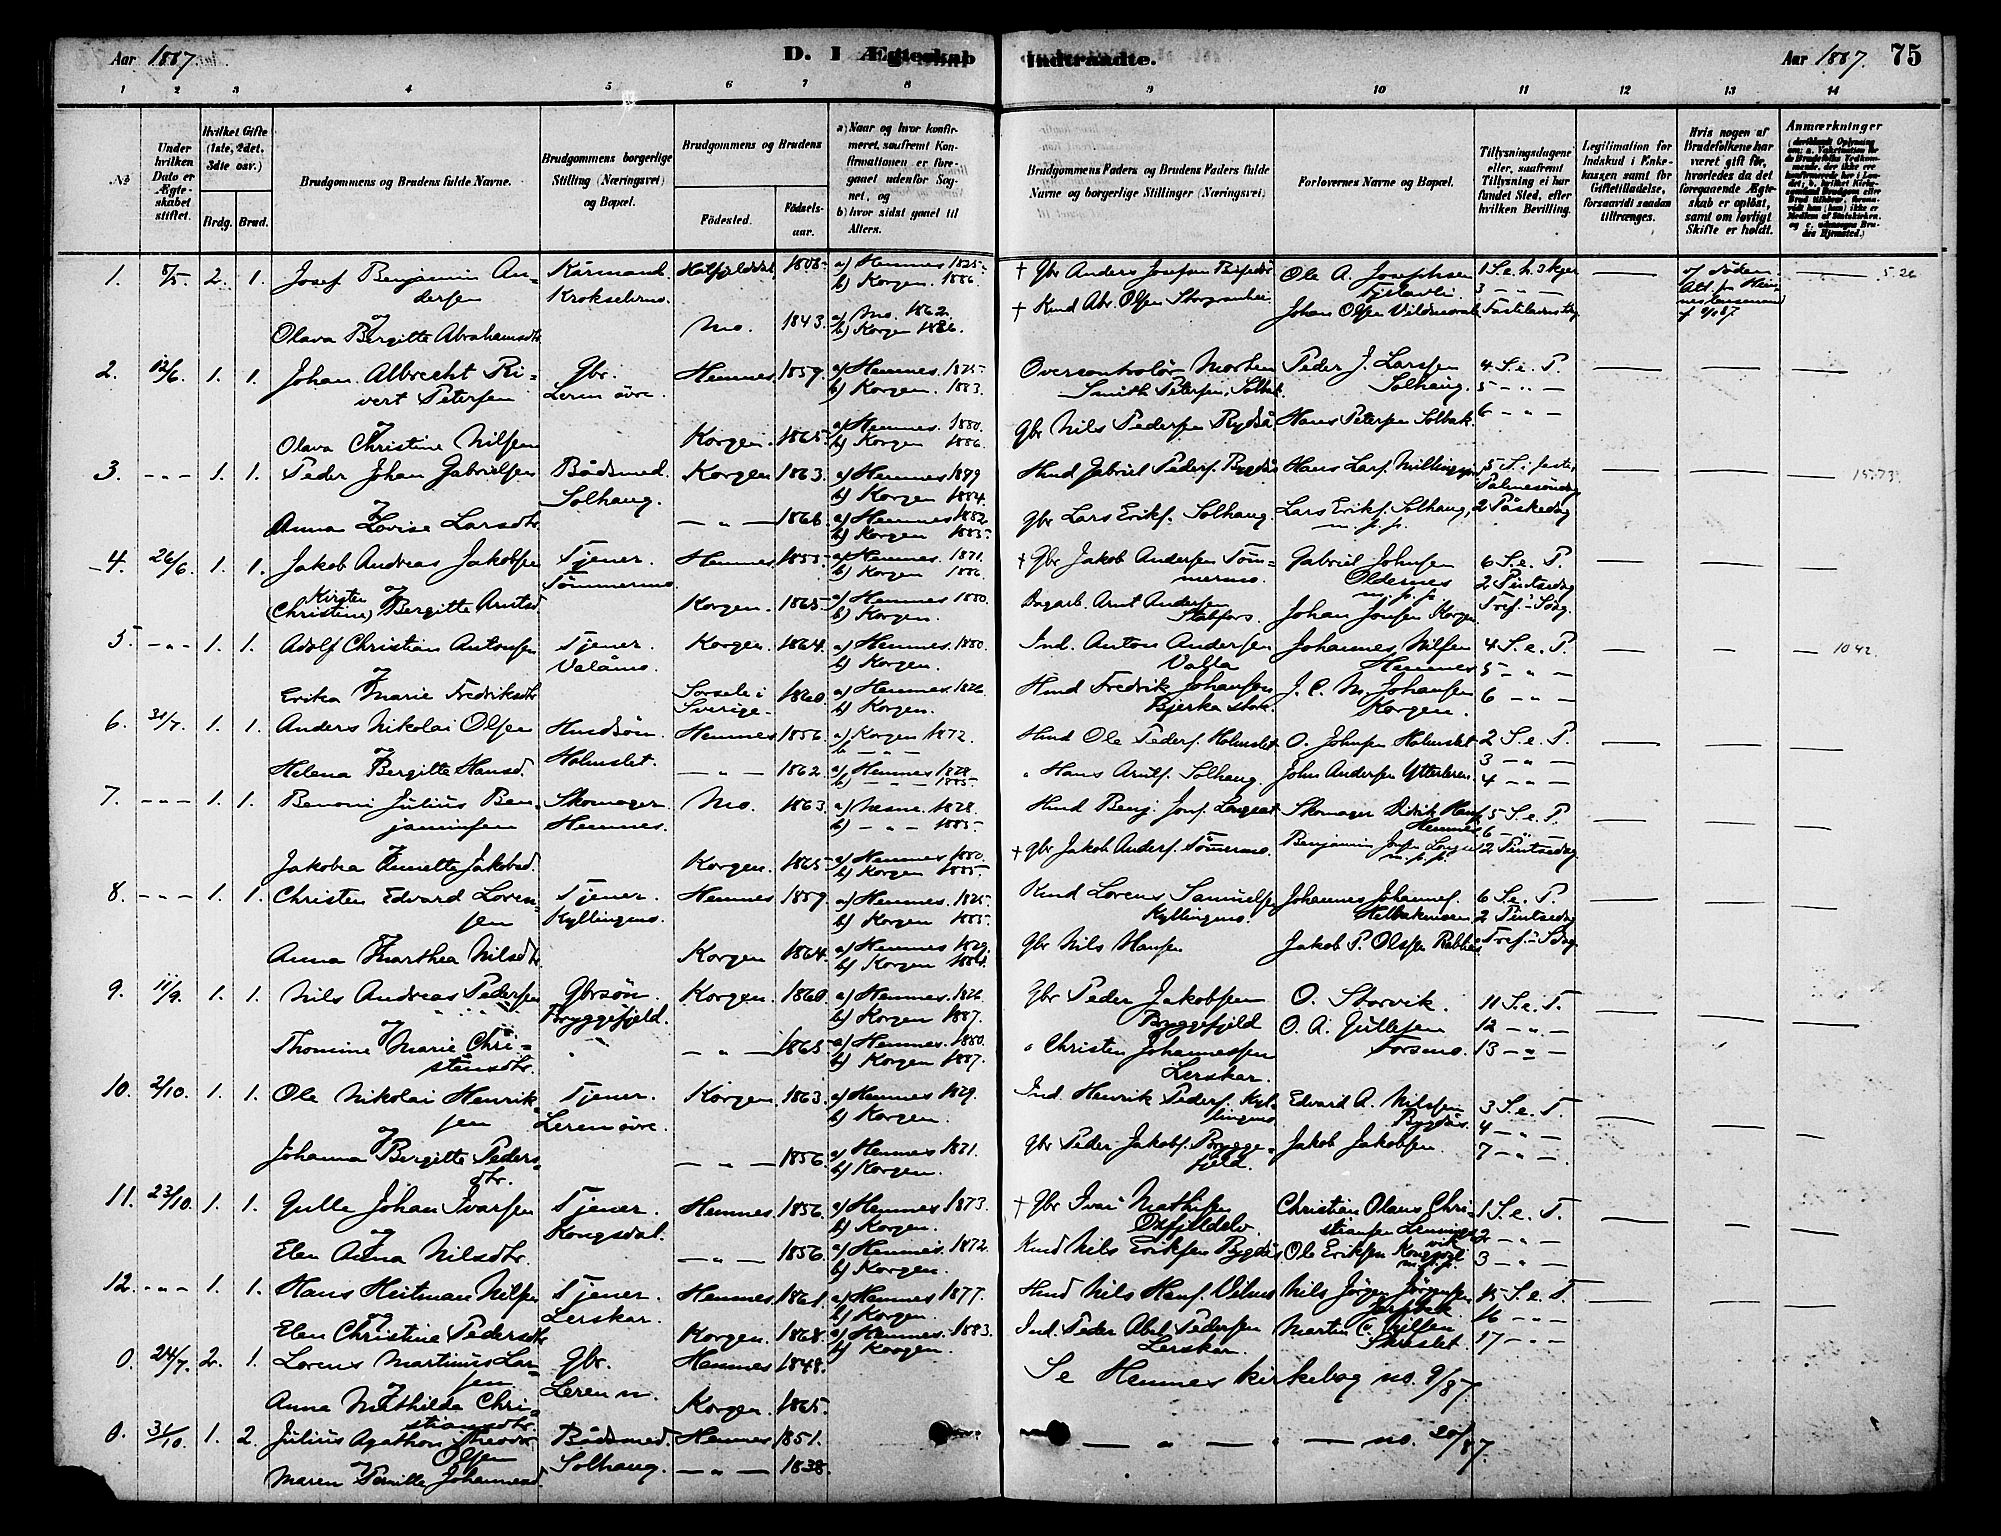 Aar 1887.
D. I Ægteskab
Indtraadte.
Aar 1887. 75
1 2 3 4 5 6 7 8 9 10 11 12 13 14
No.
Under hvilken Dato er Ægteskabet stiftet.
Hvilket Gifte (1ste, 2det, 3dte osv.)
Brdg. Brud.
Brudgommens og Brudens fulde Navne.
Brudgommens borgerlige Stilling (Næringsvei) og Bopæl.
Brudgommens og Brudens
Födested. Födselsaar.
a) Naar og hvor konfirmeret, saafremt Konfirmationen er foregaaet udenfor Sognet, og
b) hvor sidst gaaet til Alters.
Brudgommens Faders og Brudens Faders fulde Navne og borgerlige Stillinger (Næringsvei)
Forlovernes Navne og Bopæl.
Tillysningsdagene eller, saafremt Tillysning ei har fundet Sted, efter hvilken Bevilling.
Legitimation for Indskud i Enkekassen samt for Giftetilladelse, forsaavidt saadan tiltrænges.
Hvis nogen af Brudefolkene har været gift för, hvorledes da det foregaaende Ægteskab er oplöst, samt om lovligt Skifte er holdt.
Anmærkninger
1. 8/5. 2. 1. Josef Benjamin Andersen Kårmand. Krokselemo. 1808. a) Hemnes 1825. b) Korgen. 1886.
† Gbr Anders Josefsen Ole A. Josephsen 1 S. e. h. 3 kger 5.26
Olava Bergitte Abrahamsdtr. Mo. 1843. a) Mo. 1862. b) Korgen 1886.
† Kmd Abr. Olsen Johan Olsen
2. 12/6. 1. 1. Johan Albrecht Rivert Petersen Gbr. Leren övre. Hemnes. 1859. a) Hemnes. 1875. b) Korgen. 1883.
Overcontrolör Morten Smith Petersen, Solbak. Peder J. Larssen Solhaug. 4 S. e. P. 5 - " -
og
Olava Christine Nilsen Korgen. 1865. a) Hemnes. 1880. b) Korgen 1886.
Gbr Nils Pedersen Bygdås Hans Petersen Solbak. 6 - " -
3. - " - 1. 1. Peder Johan Gabrielsen Bådsmed. Solhaug. Korgen 1863. a) Hemnes 1879 b) Korgen 1884.
Hmd Gabriel Peders. Bygdås Hans Lars. 5 S. i faste, Palmesöndag 1573.
og
Anna Lovise Larsdtr. - " - 1866. a) Hemnes 1882. b) Korgen 1885.
Gbr Lars Eriks. Solhaug. Lars Eriks. Solhaug, m. p. p. 2 Påskedag
4. 26/6. 1. 1. Jakob Andreas Jakobsen Tjener. Tömmermo. Hemnes 1855. a) Hemnes. 1871. b) Korgen 1886.
† Gbr Jakob Andersen Tömmermo. Gabriel Johnsen Oldernes m. p. p. 6 S. e. P. 2 Pintsedag
Kirsten og
(Christine) Bergitte Arntsd. Korgen. 1865. a) Hemnes 1880. b) Korgen.
Arnt Andersen Stabfors. Johan Jonsen Korgen Tref. Sdag.
5. - " - 1. 1. Adolf Christian Antonsen Tjener. Valåmo. Korgen. 1864. a) Hemnes. 1880. b) Korgen.
Ind. Anton Andersen Valla Johannes Nilsen Hemnes 4 S. e. P. 5 - " - 1042.
og
Erika Marie Fredriksdtr Sorsele i Sverige. 1860. a) Hemnes. 1876. b) Korgen.
Hmd Fredrik Johansen Bjerka J. C. M. Johansen Korgen. 6 - " -
6. 31/7. 1. 1. Anders Nikolai Olsen Hmdsön. Holmslet. Hemnes. 1856. a) Korgen 1872.
Hmd Ole Peders. Holmslet O. Johnsen Holmslet 2 S. e. P. 3 - " -
Helena Bergitte Hansd. - " - 1862. a) Hemnes 1878. 1885.
" Hans Arnts. Solhaug. John Andersen Ytterleren 4 - " -
7. - " - 1. 1. Benoni Julius Benjaminsen Skomager. Hemnes. Mo. 1863. a) Nesne. 1878. b) - " - 1885.
Hmd Benj. Jons. Skomager Didrik Hans. Hemnes 5 S. e. P. 6 - " -
og
Jakobea Anette Jakobsd. Korgen. 1865. a) Hemnes 1880. b) Korgen 1885.
† Gbr Jakob Anders. Tömermo. Benjamin m. p. p. 2 Pintsedag
8. - " - 1. 1. Christen Edvard Lorensen Tjener. Kyllingmo. Hemnes 1859. a) Hemnes 1875. b) Korgen 1885.
Kmd Lorens Samuelsen Kyllingmo. Johannes Johannes. 6 S. e. P. 2 Pintsedag
og
Anna Marthea Nilsdtr. Korgen 1864. a) Hemnes 1879. b) Korgen 1884.
Gbr Nils Hansen Jakob P. Olssen Tref. Sdag.
9. 11/9. 1. 1. Nils Andreas Pedersen Gbrsön. Bryggefjeld. Korgen. 1860. a) Hemnes. 1876. b) Korgen 1887.
Gbr Peder Jakobsen Bryggefjeld O. Storvik. 11 S. e. T.
og
Thomine Marie Christensdtr. - " - 1865. a) Hemnes. 1880. b) Korgen 1887.
" Christen Johannessen Lerskar. O. A. Gullesen Forsmo. 12 - " - 13 - " -
10. 2/10. 1. 1. Ole Nikolai Henriksen Tjener. Leren övre. Korgen. 1863. a) Hemnes 1879. b) Korgen.
Ind. Henrik Peders. Kyllingmo Edvard A. Nilssen Bygdås. 3 S. e. T. 4 - " -
og
Johanna Bergitte Pedersdtr. - " - 1856. a) Hemnes 1871. b) Korgen.
Gbr Peder Jakobs. Bryggefjeld. Jakob Jakobsen. 7 - " -
11. 23/10. 1. 1. Gulle Johan Ivarsen Tjener. Kongsdal. Hemnes. 1856. a) Hemnes 1873. b) Korgen.
† Gbr Ivar Mathisen Oxfjeldelv Christian Olaus Christiansen 1 S. e. T. 2 - " -
og
Elen Anna Nilsdtr. - " - 1856. a) Hemnes. 1872. b) Korgen.
Kmd Nils Eriksen Bygdås Ole Eriksen m. p. p. 3 - " -
12. - " - 1. 1. Hans Heitman Nilsen Tjener. Lerskar. Hemnes. 1861. a) Hemnes 1877. b) Korgen.
Hmd Nils Hans. Nils Jörgen Jörgensen 15 S. e. T. 16 - " -
og
Elen Christine Pedersdtr Korgen. 1868. a) Hemnes. 1883. b) Korgen.
Ind. Peder Abel Pedersen Lerskar. Martin C. Nilsen 17 - " -
0. 24/7. 2. 1. Lorens Martinus Larsen Gbr. Leren n. Hemnes 1848.
Se Hemnes kirkebog no. 9/87.
og
Anna Mathilda Christiansdtr. Korgen. 1865.
0. 31/10. 1. 2. Julius Agathon Theodor Olsen Bådsmed. Solhaug. Hemnes 1851.
- " - " - no. 20/87.
og
Maren Pernille Johannesd. - " - 1838.